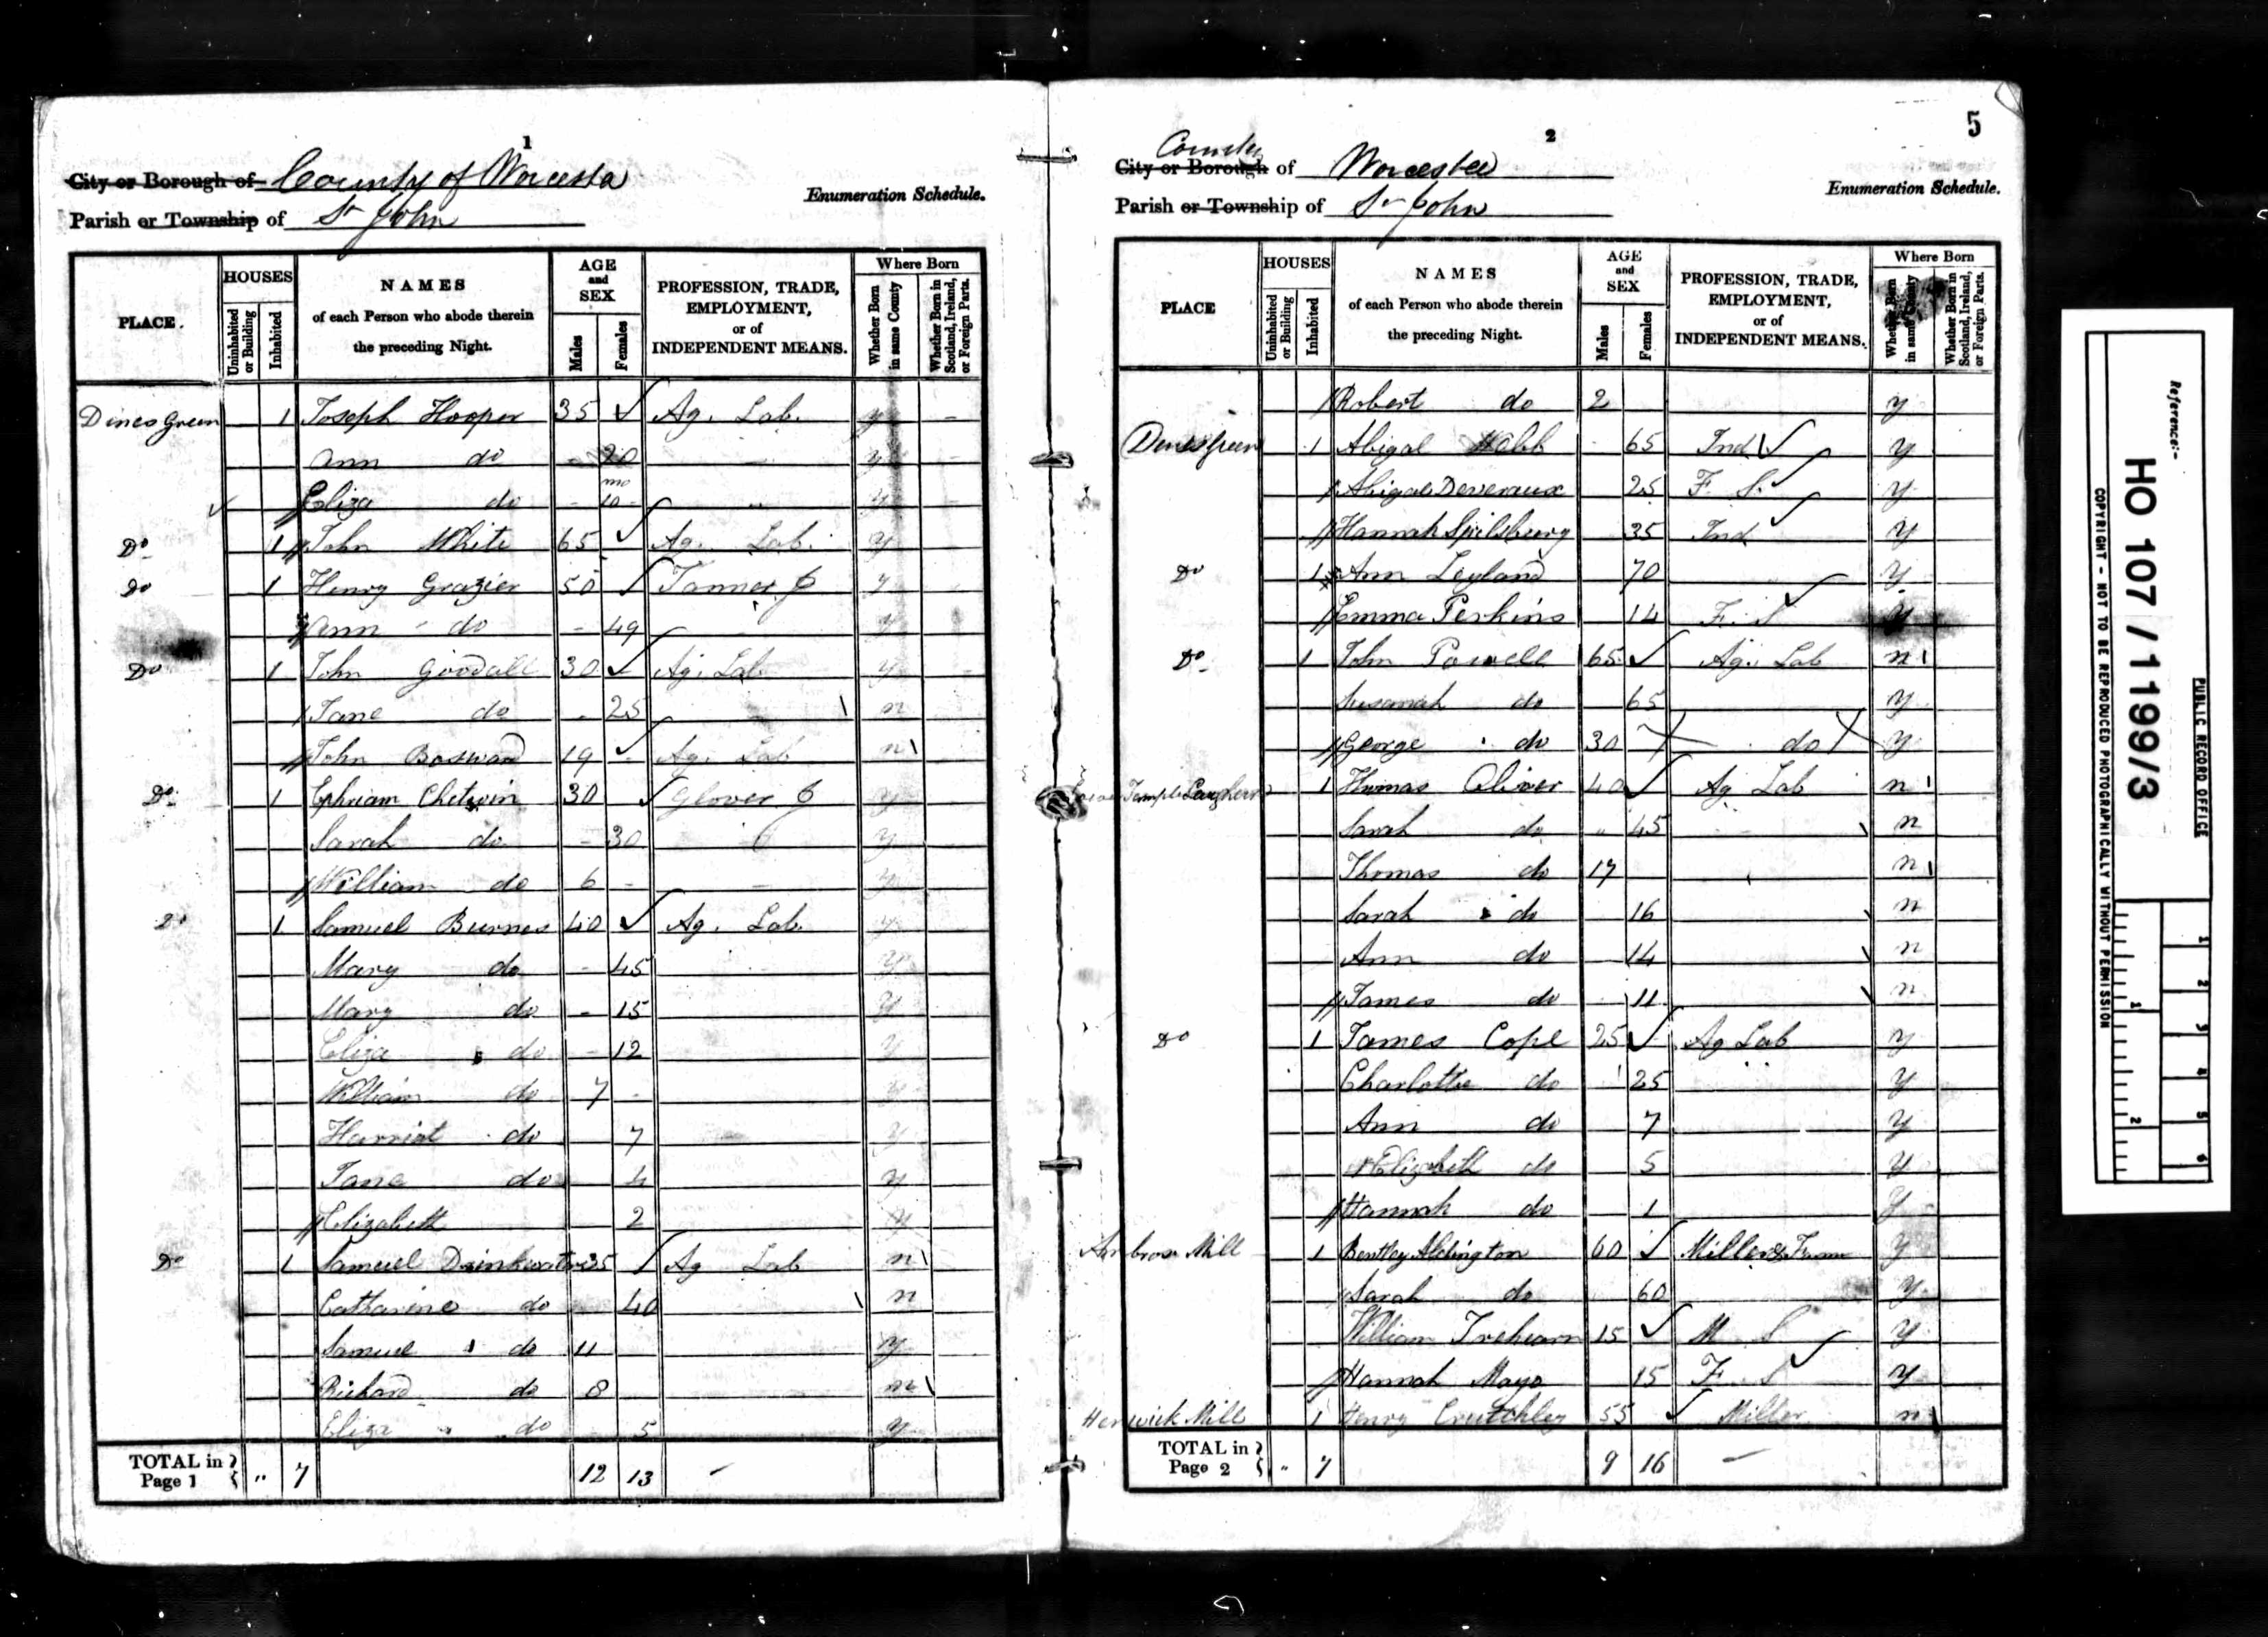 1
City or Borough of County of Worcester
Enumeration Schedule.
Parish or Township of St John
PLACE.
HOUSES
Uninhabited or Building
Inhabited
NAMES of each Person who abode therein the preceding Night.
AGE and SEX
Males
Females
PROFESSION, TRADE, EMPLOYMENT, or of INDEPENDENT MEANS.
Where Born
Whether Born in same County
Whether Born in Scotland, Ireland, or Foreign Parts.
Dines Green 1 Joseph Hooper 35 Ag. Lab. y
Ann do 20 y
Eliza do 10 mo y
Do 1 John White 65 Ag. Lab. y
do 1 Henry Grazier 50 Tanner J y
Ann do 49 y
Do 1 John Goodall 30 Ag. Lab y
Jane do 25 n
John Bosward 19 Ag. Lab n
Do 1 Ephriam Chetwin 30 Glover J y
Sarah do 30 y
William do 6 y
Do 1 Samuel Burnes 40 Ag. Lab. y
Mary do 45 y
Mary do 15 y
Eliza do 12 y
William do 7 y
Harriat do 7 y
Jane do 4 y
Elizabeth 2 y
Do 1 Samuel Drinkwater 35 Ag Lab n
Catharine do 40 n
Samuel do 11 y
Richard do 8 n
Eliza do 5 y
TOTAL in Page 1 " 7 12 13
5
2
City or Borough County of Worcester
Enumeration Schedule.
Parish or Township of St John
PLACE
HOUSES
Uninhabited or Building
Inhabited
NAMES of each Person who abode therein the preceding Night.
AGE and SEX
Males
Females
PROFESSION, TRADE, EMPLOYMENT, or of INDEPENDENT MEANS.
Where Born
Whether Born in same County
Whether Born in Scotland, Ireland, or Foreign Parts.
Robert do 2 y
Dines Green 1 Abigal Webb 65 Ind y
Abigal Deveraux 25 F. S. y
Hannah Spilsbury 35 Ind y
Do 1 Ann Leyland 70 y
Emma Perkins 14 F. S y
Do 1 John Powell 65 Ag. Lab n
Susanah do 65 y
George do 30 do y
Temple Laughern 1 Thomas Oliver 40 Ag Lab n
Sarah do 45 n
Thomas do 17 n
Sarah do 16 n
Ann do 14 n
James do 11 n
Do 1 James Cope 25 Ag Lab y
Charlotte do 25 y
Ann do 7 y
Elizabeth do 5 y
Hannah do 1 y
Ambrose Mill 1 Bentley Aldington 60 Miller & Farm y
Sarah do 60 y
William Trehearn 15 M S y
Hannah Mayo 15 F. S y
Henwick Mill 1 Henry Crutchley 55 Miller n
TOTAL in Page 2 " 7 9 16
Reference:-
HO 107/1199/3
PUBLIC RECORD OFFICE
COPYRIGHT - NOT TO BE REPRODUCED PHOTOGRAPHICALLY WITHOUT PERMISSION
1 2 3 4 5 6
1 2